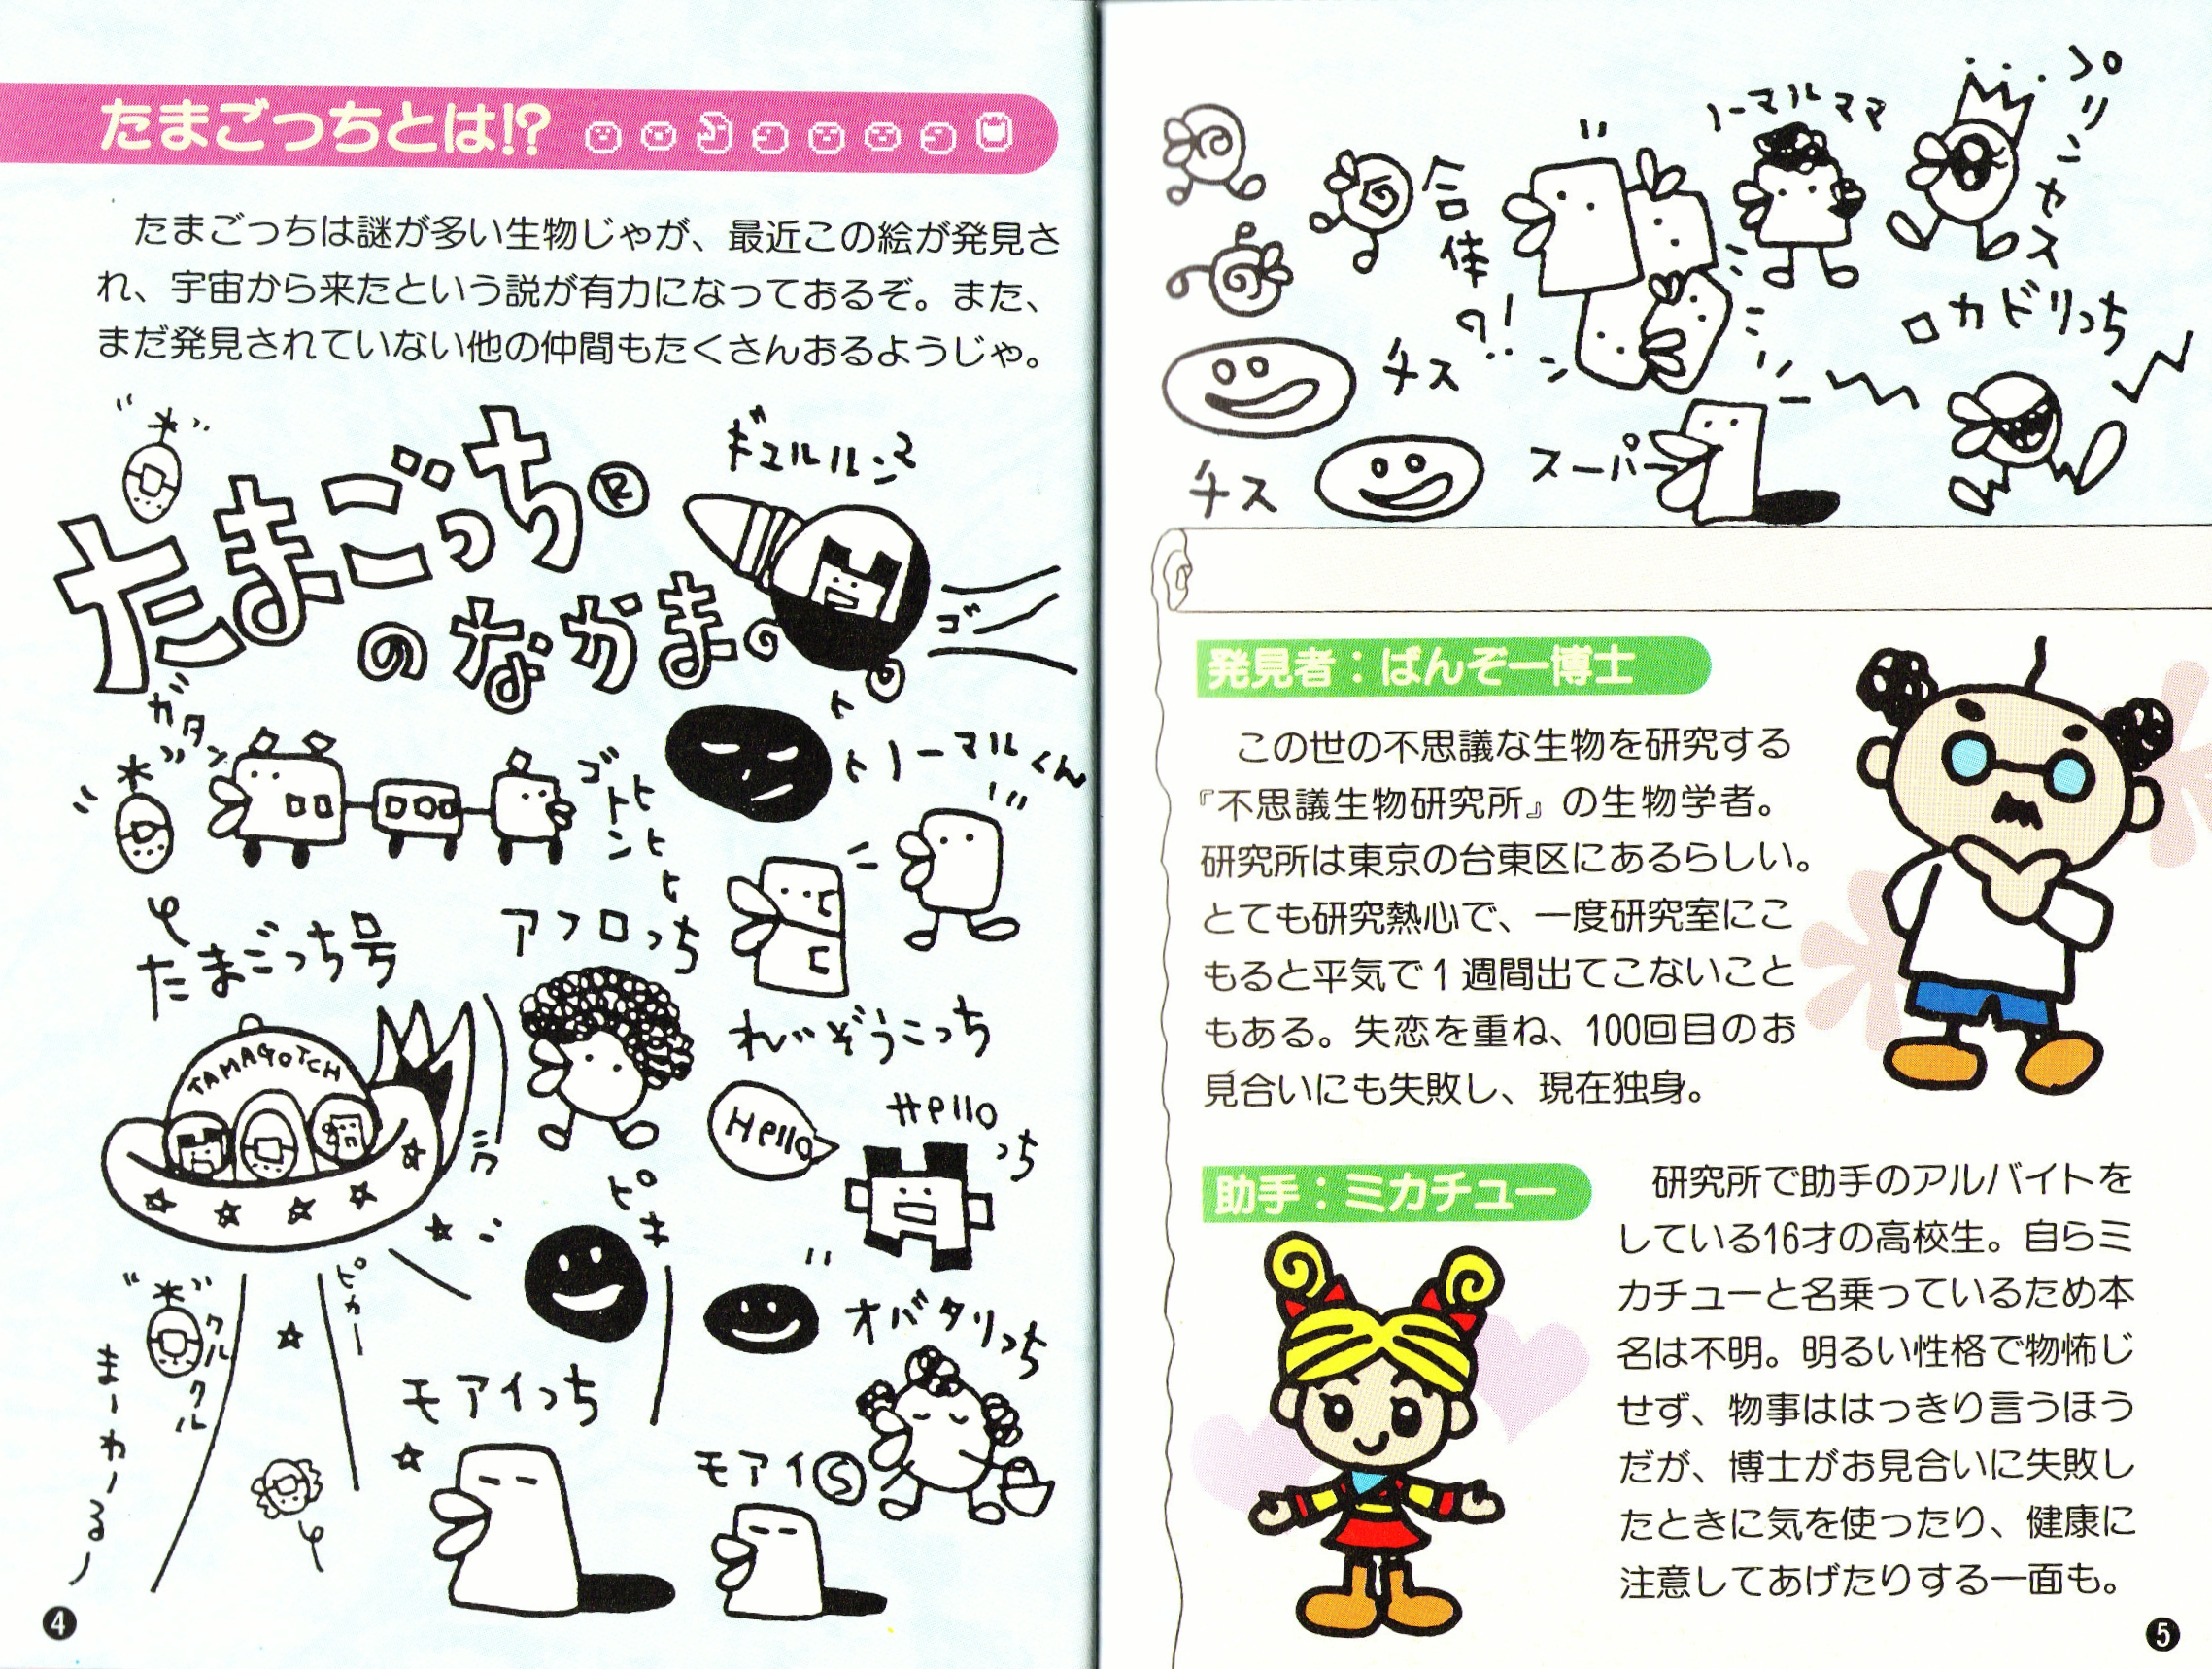 たまごっちとは!?
たまごっちは謎が多い生物じゃが、最近この絵が発見さ
れ、宇宙から来たという説が有力になっておるぞ。また、
まだ発見されていない他の仲間もたくさんおるようじゃ。
たまごっち®
のなかま
ギュルルン
ゴー
ガタン
ゴトン
トトノーマルくん
たまごっち号
アフロっち
れいぞうこっち
TAMAGOTCH
Hello
Helloっち
ピキ
ピカー
クルクル
まーわーるー
オバタリっち
モアイっち
モアイⓈ
4
合体
の!
ノーマルママ
プリンセス
カドリっち
チス
チス
スーパー
発見者：ばんぞー博士
この世の不思議な生物を研究する
『不思議生物研究所』の生物学者。
研究所は東京の台東区にあるらしい。
とても研究熱心で、一度研究室にこ
もると平気で1週間出てこないこと
もある。失恋を重ね、100回目のお
見合いにも失敗し、現在独身。
助手：ミカチュー
研究所で助手のアルバイトを
している16才の高校生。自らミ
カチューと名乗っているため本
名は不明。明るい性格で物怖じ
せず、物事ははっきり言うほう
だが、博士がお見合いに失敗し
たときに気を使ったり、健康に
注意してあげたりする一面も。
5